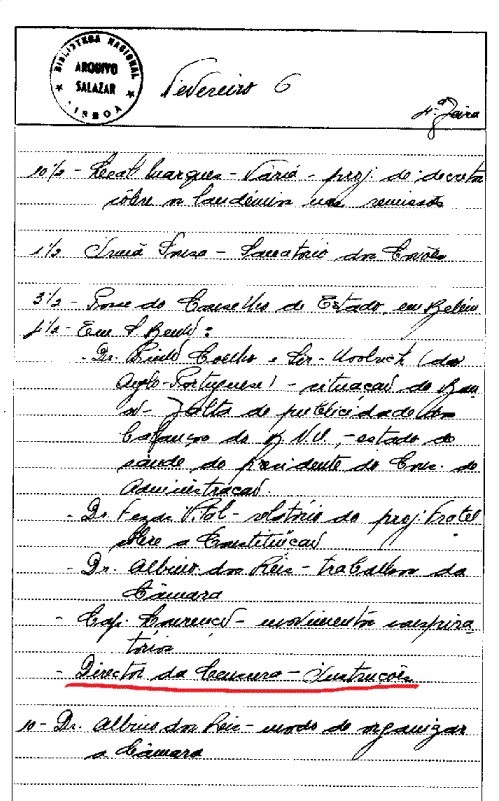 BIBLIOTECA NACIONAL
ARQUIVO
SALAZAR
LISBOA
Fevereiro 6
4ª feira
10 ½ - Leal Marques - Vária - proj. de decreto
sôbre o laudémio nas remissões
1 ½ - Sousa - Sanatório dos Covões
3 ½ - Posse do Conselho de Estado, em Belém
Em S. Bento:
- Dr. Pinto Coelho e (do
Anglo-Portuguese) - situação do Ban
co - falta de publicidade dos
balanços do B.N.U., - estado de
saúde do Presidente do Cons. de
Administração.
- Dr. Fezas Vital - relatório do proj.
sôbre a Constituição
- Dr. Albino dos Reis - trabalhos da
Câmara
- Cap. Lourenço - movimentos conspira-
tórios
- Director da Censura - Instruções
10 - Dr. Albino dos Reis - modo de organizar
a Câmara